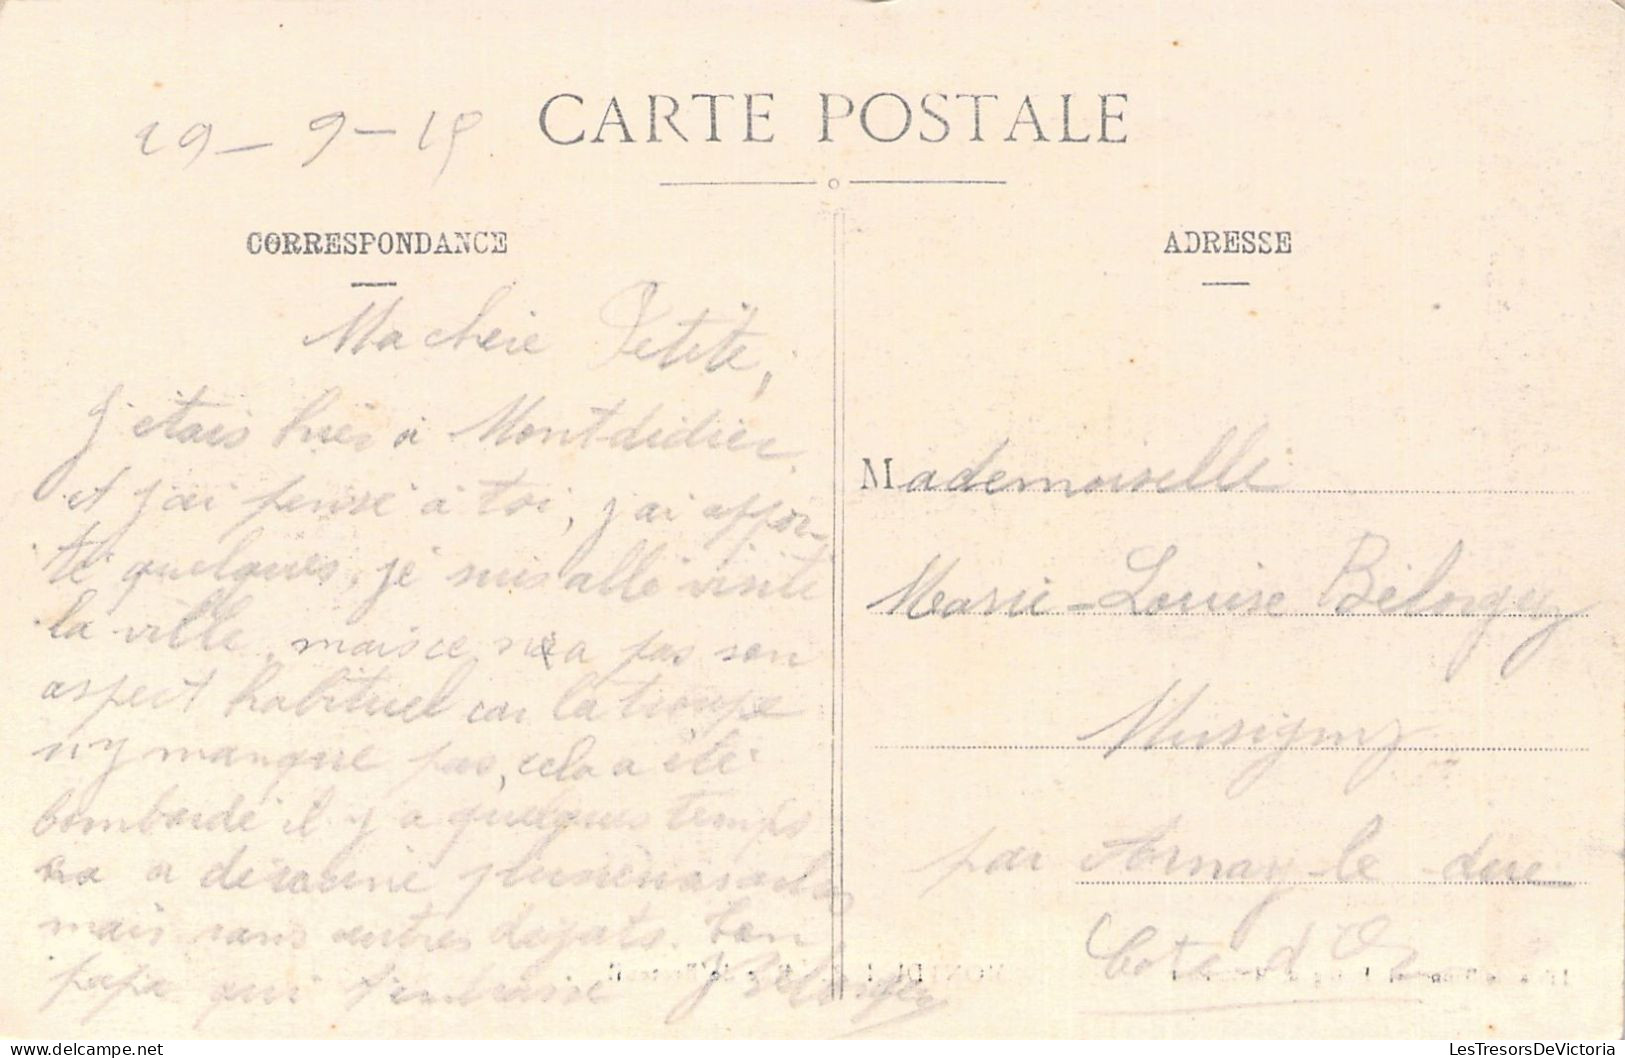 CARTE POSTALE
29-9-15
CORRESPONDANCE
Ma chère Petite,
J'etais hier à Montdidier
et j'ai pensé à toi, j'ai appor-
té quelques, je suis allé visité
la ville, mais ce n'a pas son
aspect habituel car la troupe
n'y manque pas, cela a été
bombardé il y a quelques temps
a déraciné plusieurs
mais sans autres dégats. Ton
papa qui t'embrasse J Belorgey
ADRESSE
Mademoiselle
Marie-Louise Bélorgey
Musigny
par Arnay-le-duc
Cote d'Or
LesTresorsDeVictoria